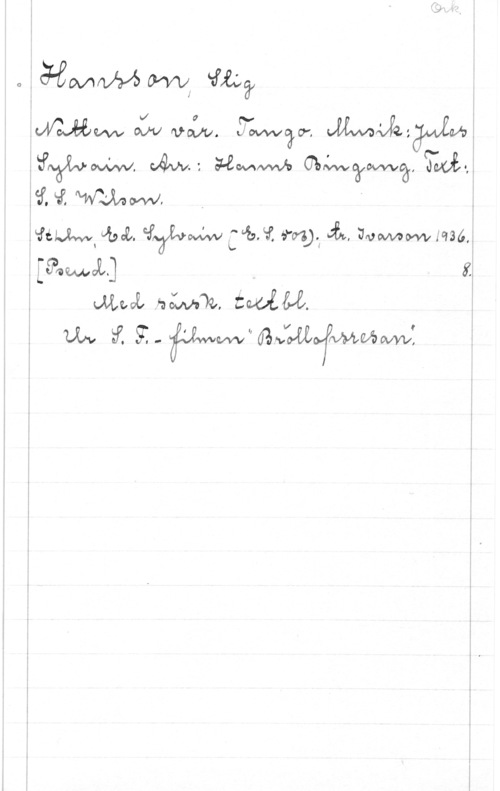 Ork.
Hansson, Stig
Natten är vår. Tango. Musik: Jules
Sylvain. Arr.: Hanns Bingang. Text:
S. S. Wilson.
Sthlm, Ed. Sylvain [E. S. 503); tr. Ivarson 1936.
[Pseud.] 8.
Med särsk. textbl.
Ur S. F. - filmen "Bröllopsresan".